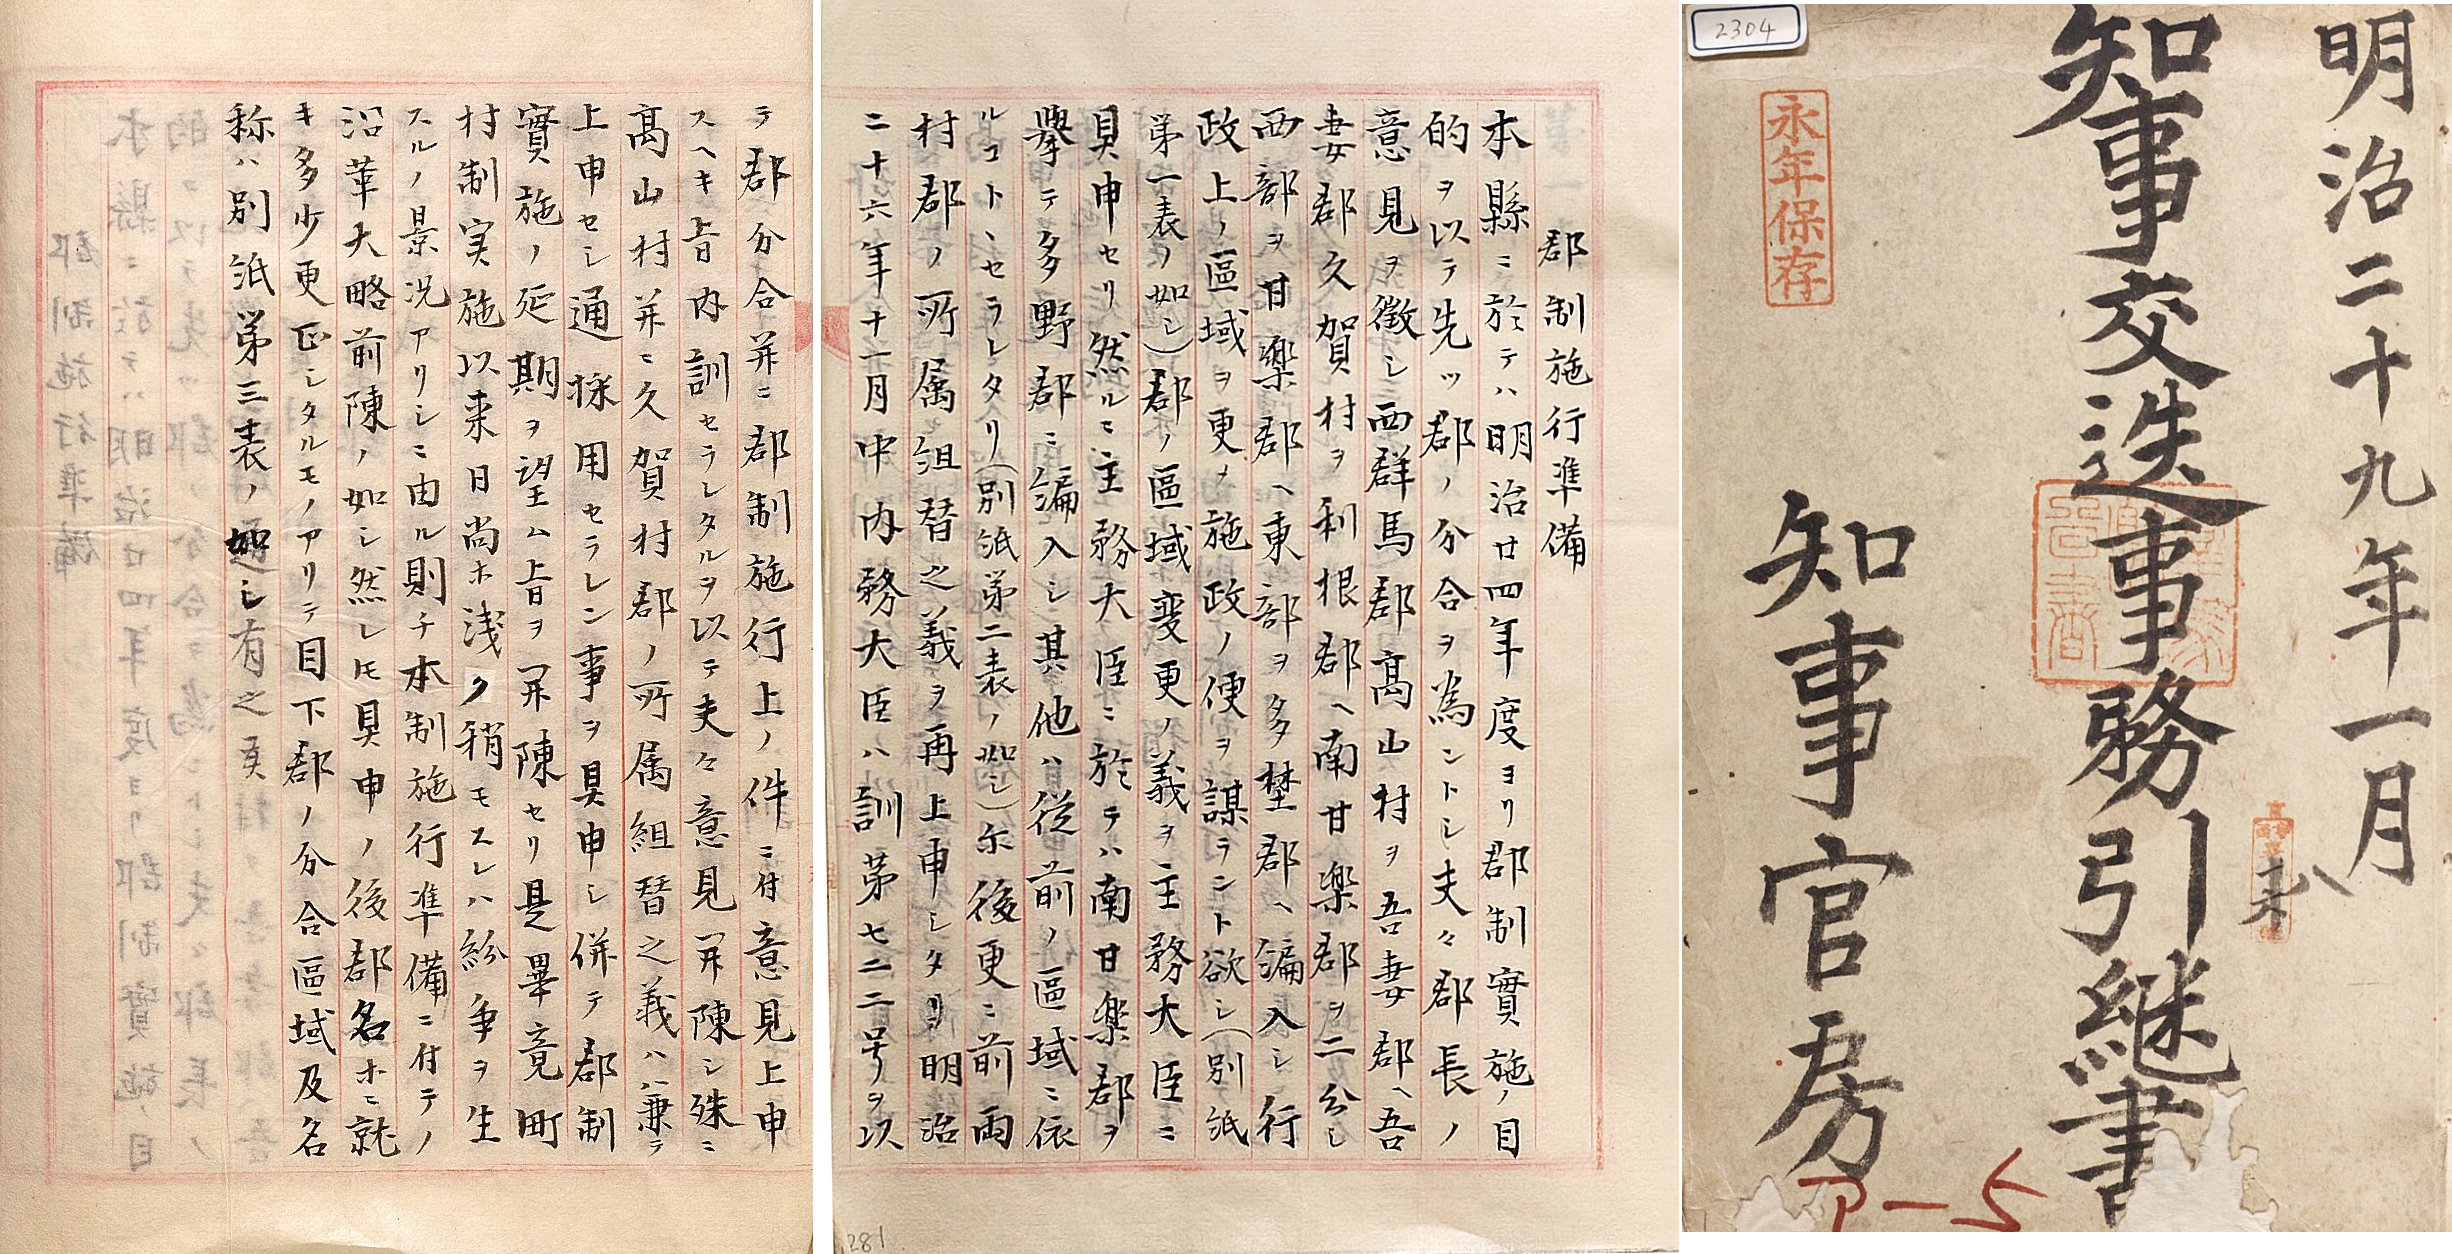 明治二十九年一月
知事交迭事務引継書
知事官房
永年保存
2304
郡制施行準備
本縣ニ於テハ明治廿四年度ヨリ郡制實施ノ目
的ヲ以テ先ツ郡ノ分合ヲ為ントシ夫々郡長ノ
意見ヲ徴シ西群馬郡高山村ヲ吾妻郡ヘ吾
妻郡久賀村ヲ利根郡ヘ南甘楽郡ヲ二分シ
西部ヲ甘楽郡ヘ東部ヲ多埜郡ヘ編入シ行
政上ノ區域ヲ更メ施政ノ便ヲ謀ラント欲シ(別紙
第一表ノ如シ)郡ノ區域変更ノ義ヲ主務大臣ニ
具申セリ然ルニ主務大臣ニ於テハ南甘楽郡ヲ
擧テ多野郡ニ編入シ其他ハ従前ノ區域ニ依
ルコトヽセラレタリ(別紙第二表ノ如シ)尓後更ニ前両
村郡ノ所属組替之義ヲ再上申シタリ明治
二十六年十一月中内務大臣ハ訓第七二二号ヲ以
テ郡分合并ニ郡制施行上ノ件ニ付意見上申
スヘキ旨内訓セラレタルヲ以テ夫々意見開陳シ殊ニ
高山村并ニ久賀村郡ノ所属組替之義ハ兼テ
上申セシ通採用セラレン事ヲ具申シ併テ郡制
實施ノ延期ヲ望ム旨ヲ開陳セリ是畢竟町
村制実施以来日尚ホ浅ク稍モスレハ紛争ヲ生
スルノ景況アリシニ由ル則チ本制施行準備ニ付テノ
沿革大略前陳ノ如シ然レトモ具申ノ後郡名ホニ就
キ多少更正シタルモノアリテ目下郡ノ分合區域及名
称ハ別紙第三表ノ如シ有之
281
P-5